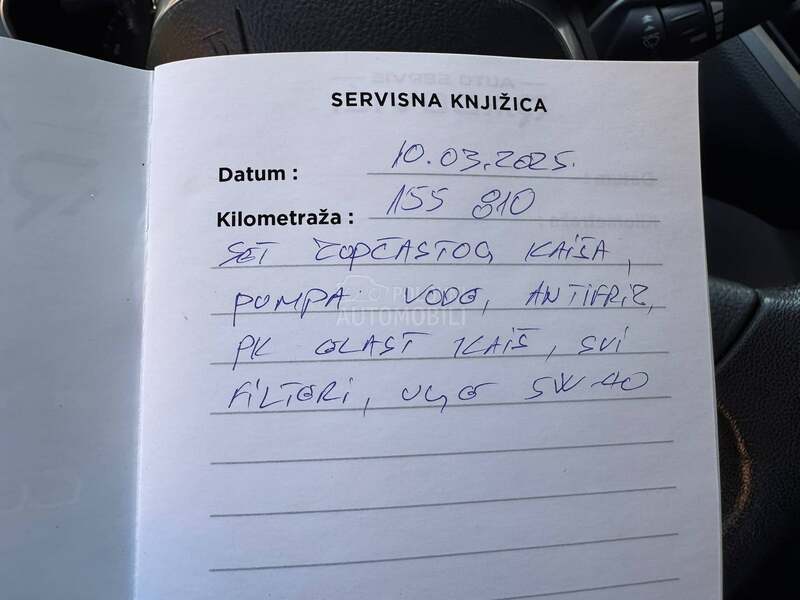 SERVISNA KNJIŽICA
Datum : 10.03.2025.
Kilometraža : 155 810
SET ZUPČASTOG KAIŠA,
PUMPA VODE, ANTIFRIZ,
PK ELAST KAIŠ, SVI
FILTERI, ULJE 5W-40
POLOVNI AUTOMOBILI